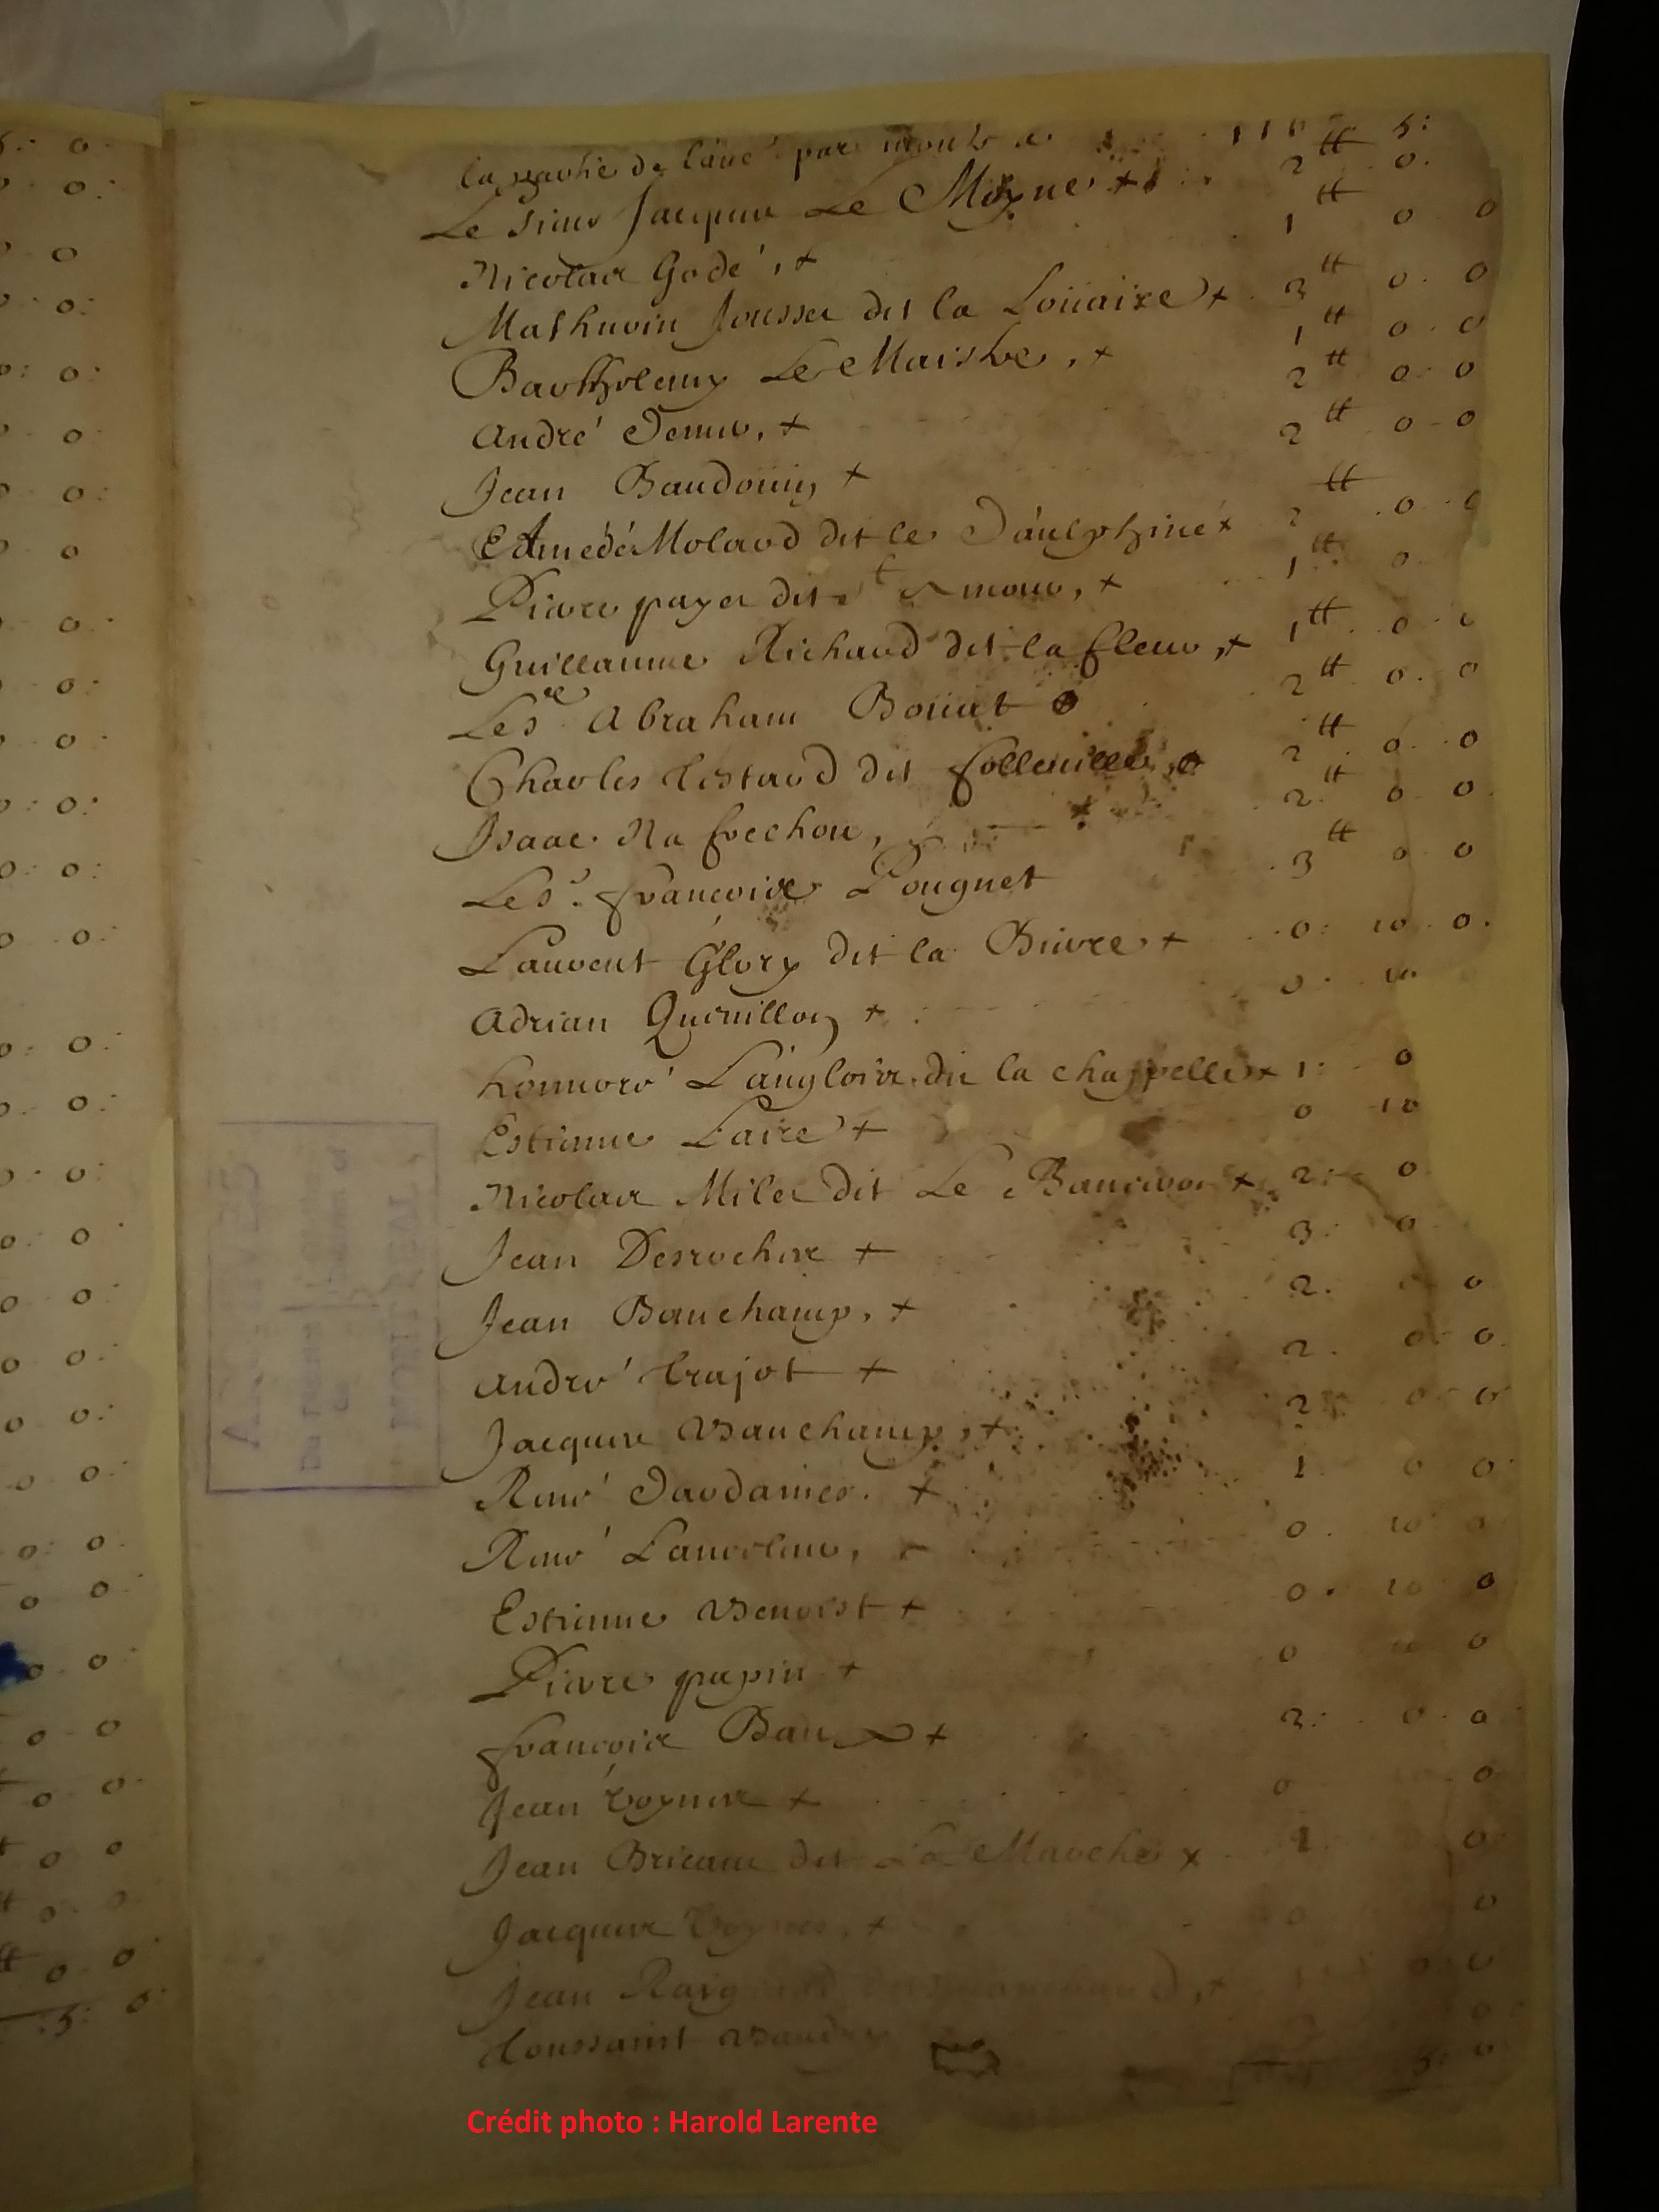 la partie de l'autre part monte a 116 ₶ 5:
Le Sieur Jacques Le Moyne + 2 ₶ 0.
Nicolas Godé, + 1 ₶ 0 0
Mathurin Jousset dit la Loüaire + 3 ₶ 0. 0
Barthelemy Le Maistre, + 1 ₶ 0. 0
André Demers, + 2 ₶ 0: 0
Jean Baudouin + 2 ₶ 0-0
Molard dit le Daulphiné + 2 ₶ 0. 0
Pierre payet dit St Amour, + 1 ₶ 0
Guillaume Richard dit la fleur, + 1 ₶ 0. 0
Le Sr Abraham Boüat 2 ₶ 0. 0
Charles Testard dit folleuille, 2 ₶ 0. 0
Isaac Nafrechou, 2 ₶ 0 0
Le Sr. françois Pougnet 3 ₶ 0 0
Laurent Glory dit la Biere + 0: 10. 0.
Adrian Quevillon + 0. 10
honnoré Langlois dit la chappelle + 1: 0
Estienne Laire + 0 10
Nicolas Milet dit Le Bauceron + 2: 0
Jean Desroches + 3: 0
Jean Bauchamp, + 2. 0
André trajot + 2. 0. 0.
Jacques Bauchamp, + 2 0. 0
René Dardaines. + 1. 0 0
René Lancelin, + 0. 10 0
Estienne Benoist + 0. 10 0
Pierre papin + 0 10 0
françois Baux + 2: 0. 0
Jean Voynes + 0 0
Jean Bricaut dit La Marche x 1 0
Jacques + 0
Jean + 0 0
Toussaint Baudry 0
5: 0
Crédit photo : Harold Larente